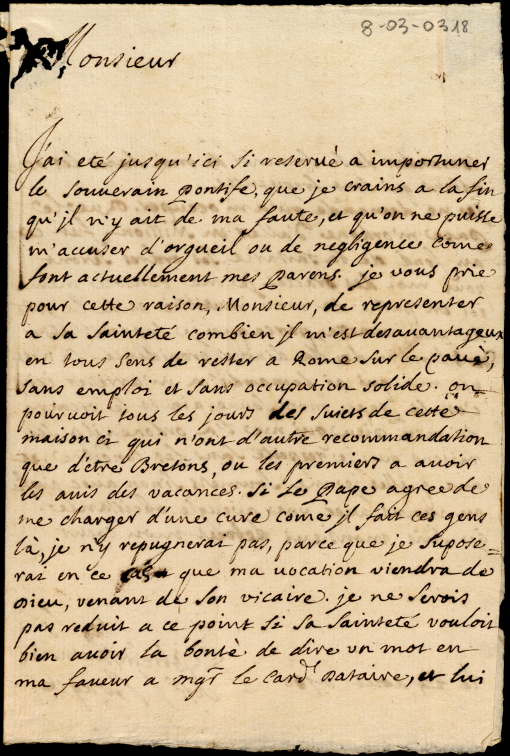 8-03-0318
Monsieur
J'ai eté jusqu'ici si reservé a importuner
le souverain Pontife, que je crains a la fin
qu'jl n'y ait de ma faute, et qu'on ne puisse
m'accuser d'orgueil ou de negligence come
font actuellement mes Parens. je vous prie
pour cette raison, Monsieur, de representer
a sa sainteté combien jl m'est desavantageux
en tous sens de rester a Rome sur le pavé,
sans emploi et sans occupation solide. on
pourvoit tous les jours des sujets de cette
maison ci qui n'ont d'autre recommandation
que d'être Bretons, ou les premiers a avoir
les avis des vacances. si le Pape agrée de
me charger d'une cure come jl fait ces gens
là, je n'y repugnerai pas, parce que je supose=
rai en ce cas que ma vocation viendra de
Dieu, venant de son vicaire. je ne serois
pas reduit a ce point si sa sainteté vouloit
bien avoir la bonté de dire un mot en
ma faveur a mgr le Card.l Dataire, et lui